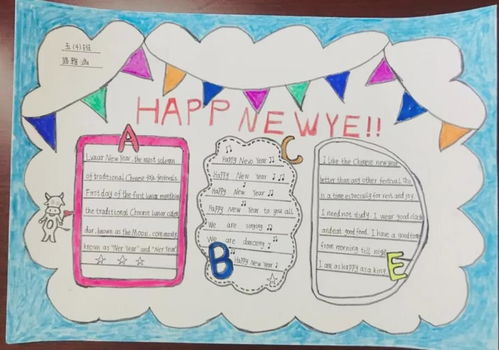 五(4)班
HAPP NEWYE!!
A
Lunar New Year, the most solemn
of traditional Chinese festivals.
First day of the first lunar month
the traditional Chinese lunar
dar, known as the commonly
known as "New Year" and "New Year"
☆ ☆ ☆
C
Happy New Year
Happy New Year
Happy New Year
Happy New Year to you all
We are singing
We are dancing
Happy New Year
B
I like the Chinese new year
better than any other festival. This
is a time especially for rest and joy.
I need not study. I wear good clothes
and eat good food. I have a good time
from morning till night.
I am as happy as a king.
E